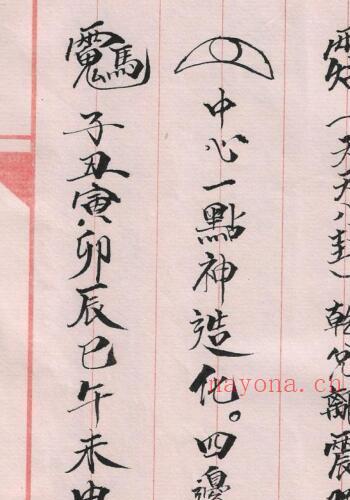 一天天八卦乾兌離震
中心一點神造化。四邊
子丑寅卯辰巳午未申
nayona.cn